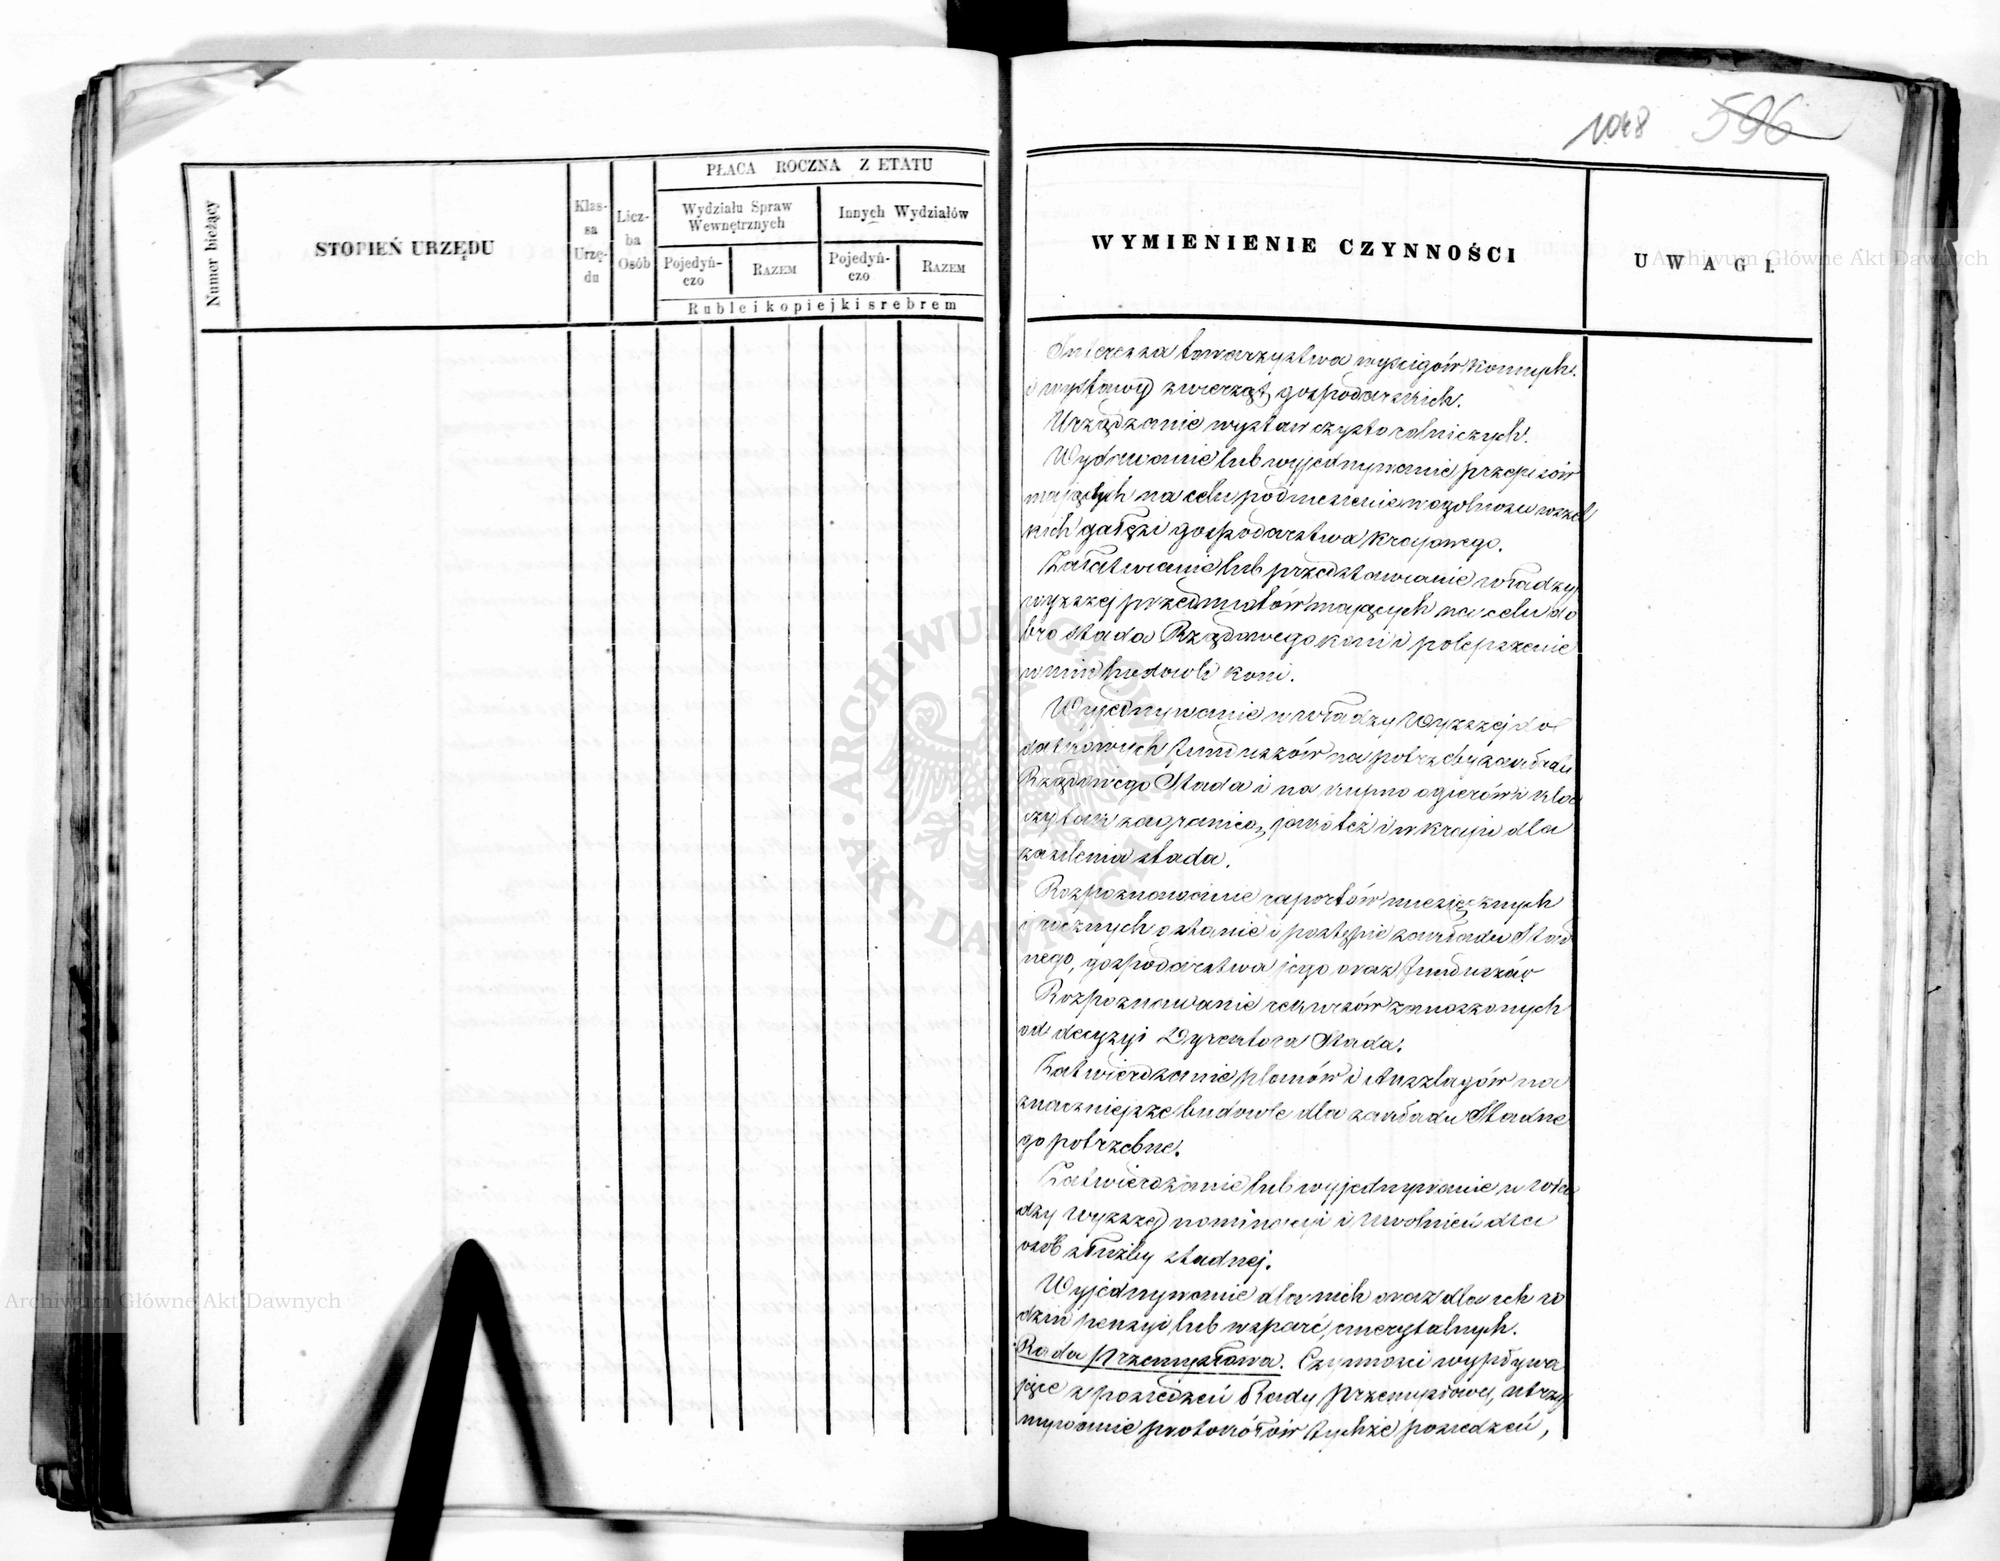 1048 596
Numer bieżący
STOPIEŃ URZĘDU
Klas-
sa
Urzę-
du
Licz-
ba
Osób
PŁACA ROCZNA Z ETATU
Wydziału Spraw
Wewnętrznych
Innych Wydziałów
Pojedyń-
czo
RAZEM
Pojedyń-
czo
RAZEM
Ruble i kopiejki srebrem
WYMIENIENIE CZYNNOŚCI
UWAGI.
Interessa towarzystwa wyścigów konnych
i wystawy zwierząt gospodarskich.
Urządzanie wystaw czysto rolniczych.
Wydawanie lub wyjednywanie przepisów
mających na celu podniesienie w ogólności wszel
kich gałęzi gospodarstwa krajowego.
Załatwianie lub przedstawianie władzy
wyższej przedmiotów mających na celu do
bro stada Rządowego koni i polepszenie
w nim hodowli koni.
Wyjednywanie u władzy Wyższej do
datkowych funduszów na potrzeby zakładu
Rządowego Stada i na kupno ogierów i kla
czy tak zagranicą, jako też i w kraju dla
zasilenia stada.
Rozpoznawanie raportów miesięcznych
i rocznych o stanie i postępie zakładu Stad
nego, gospodarstwa jego oraz funduszów
Rozpoznawanie rekursów zanoszonych
od decyzyi Dyrektora Stada.
Zatwierdzanie planów i Anszlagów na
znaczniejsze budowle dla zakładu Stadne
go potrzebne.
Zatwierdzanie lub wyjednywanie u wła
dzy wyższej nominacji i uwolnień dla
osób służby stadnej.
Wyjednywanie dla nich oraz dla ich ro
dzin pensyi lub wsparć emerytalnych.
Rada przemysłowa. Czynności wypływa
jące z posiedzeń Rady przemysłowej, utrzy
mywanie protokółów tychże posiedzeń,
ARCHIWUM GŁÓWNE AKT DAWNYCH
Archiwum Główne Akt Dawnych
Archiwum Główne Akt Dawnych